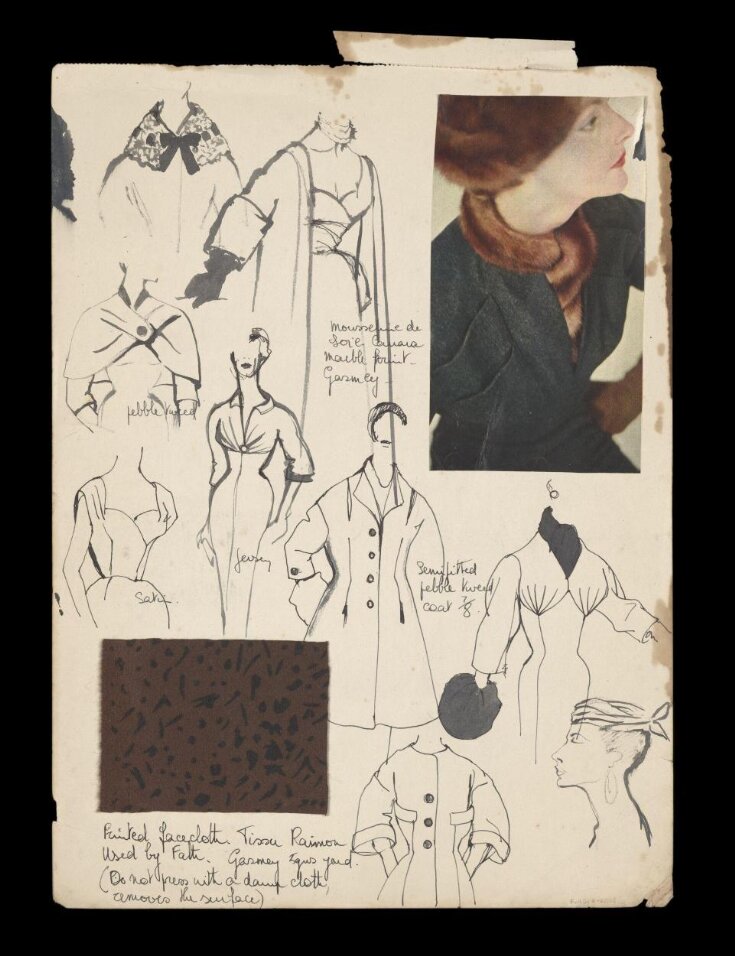 Mousseline de
Soie,
marble print.
Gasmey
pebble tweed
Jersey
Semifitted
pebble tweed
coat 7/8.
Satin.
Printed facecloth. Tissu Raimon
Used by Fath. Gasmey 29us yard.
(Do not press with a damp cloth,
removes the surface)